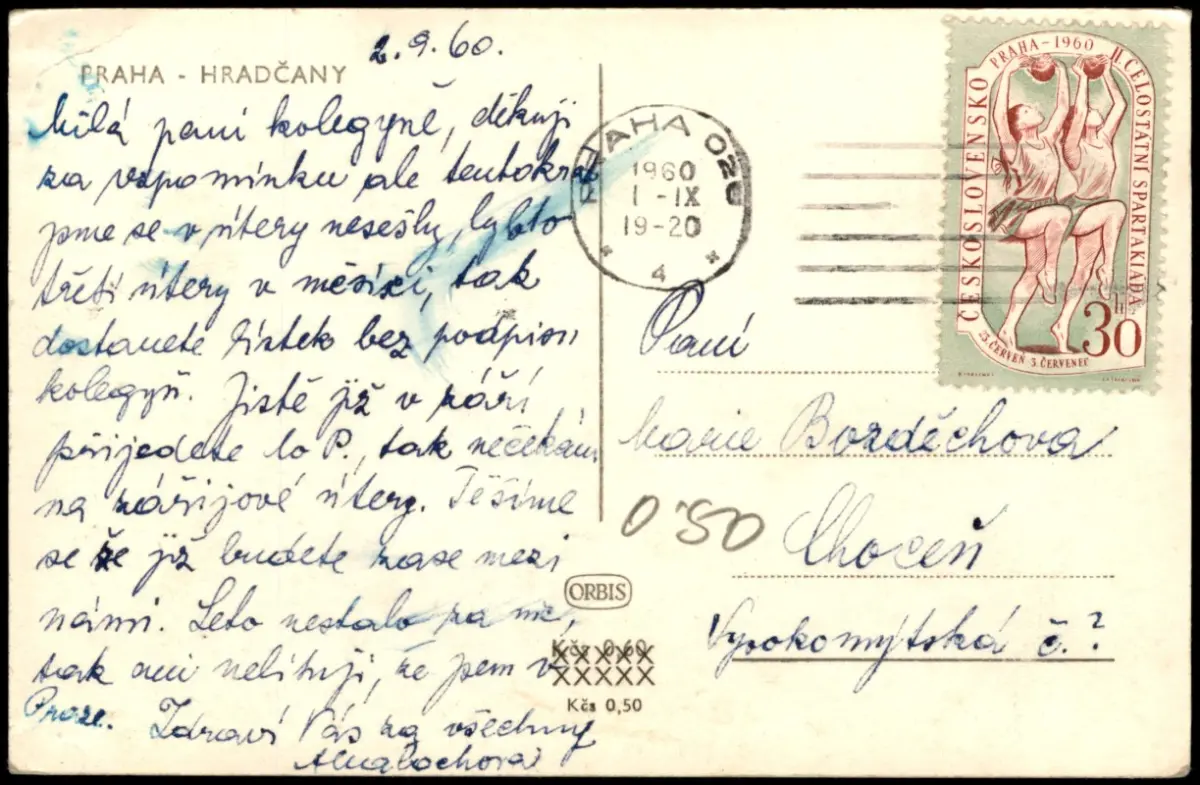 2.9.60.
PRAHA - HRADČANY
Milá paní kolegyně, děkuji
za vzpomínku ale tentokrát
jsme se v úterý nesešly, bylo to
třetí úterý v měsíci, tak
dostanete lístek bez podpisu
kolegyň. Jistě již v září
přijedete do P., tak nečekám
na zářijové úterý. Těšíme
se že již budete zase mezi
námi. Léto nestálo za nic,
tak ani nelituji, že jsem v
Praze. Zdraví Vás za všechny
PRAHA 025
1960
1-IX
19-20
* 4 *
ČESKOSLOVENSKO
PRAHA - 1960
II. CELOSTÁTNÍ SPARTAKIÁDA
23. ČERVEN 3. ČERVENEC
30 h
Paní
Marie Bozděchova
0'50
Choceň
Vysokomýtská č.?
ORBIS
Kčs 0,60
XXXXX
XXXXX
Kčs 0,50